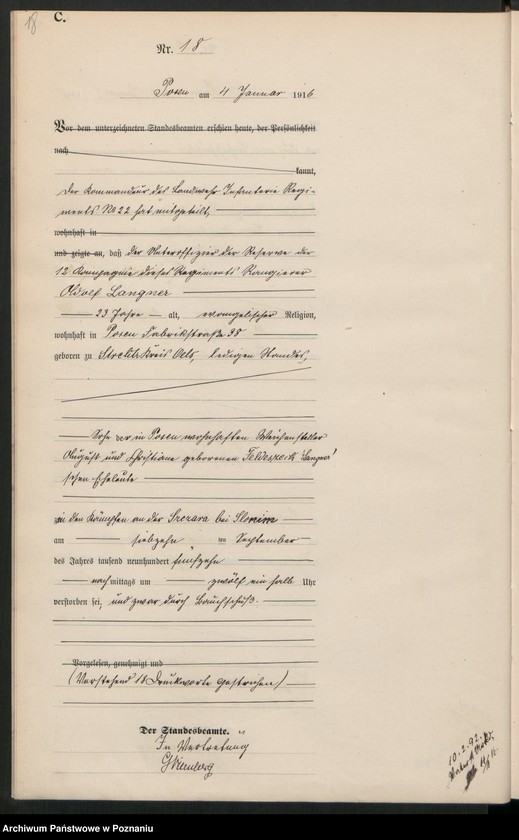 18
C.
Nr. 18
Posen am 4 Januar 1916
Vor dem unterzeichneten Standesbeamten erschien heute, der Persönlichkeit
nach
kannt,
Der Kommandeur des Landwehr Infanterie Regi-
ments No 22 hat mitgeteilt,
wohnhaft in
und zeigte an, daß der Unteroffizier der Reserve der
12 Kompagnie dieses Regiments Rangierer
Adolf Langner
23 Jahre alt, evangelischer Religion,
wohnhaft in Posen Fabrikstraße 38
geboren zu Strehlitz Kreis Oels, ledigen Standes,
Sohn der in Posen wohnhaften Weichensteller
August und Christiane geborenen Langner'
schen Eheleute
in den Kämpfen an der Szczara bei Slonim
am siebzehn ten September
des Jahres tausend neunhundert fünfzehn
nachmittags um zwölf ein halb Uhr
verstorben sei, und zwar durch Bauchschuß.
Vorgelesen, genehmigt und
(Vorstehend 18 Druckworte gestrichen)
Der Standesbeamte.
In Vertretung
10.2.92.
Archiwum Państwowe w Poznaniu